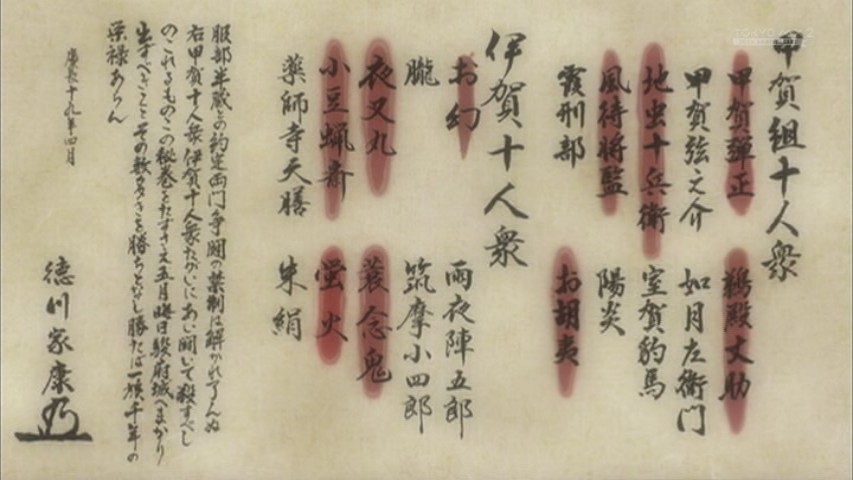 甲賀組十人衆
甲賀彈正 鵜殿丈助
甲賀弦之介 如月左衛門
地虫十兵衛 室賀豹馬
風待將監 陽炎
霞刑部 お胡夷
伊賀十人衆
お幻 雨夜陣五郎
朧 筑摩小四郎
夜叉丸 蓑念鬼
小豆蝋斎 螢火
薬師寺天膳 朱絹
服部半蔵との約定両門争闘の禁制は解かれ了んぬ
右甲賀十人衆伊賀十人衆たがいにあい闘いて殺すべし
のこれるものこの秘巻をたずさえ五月晦日駿府城へまかり
出ずべきことその数多きを勝ちとなし勝たば一族千年の
栄禄あらん
慶長十九年四月
徳川家康